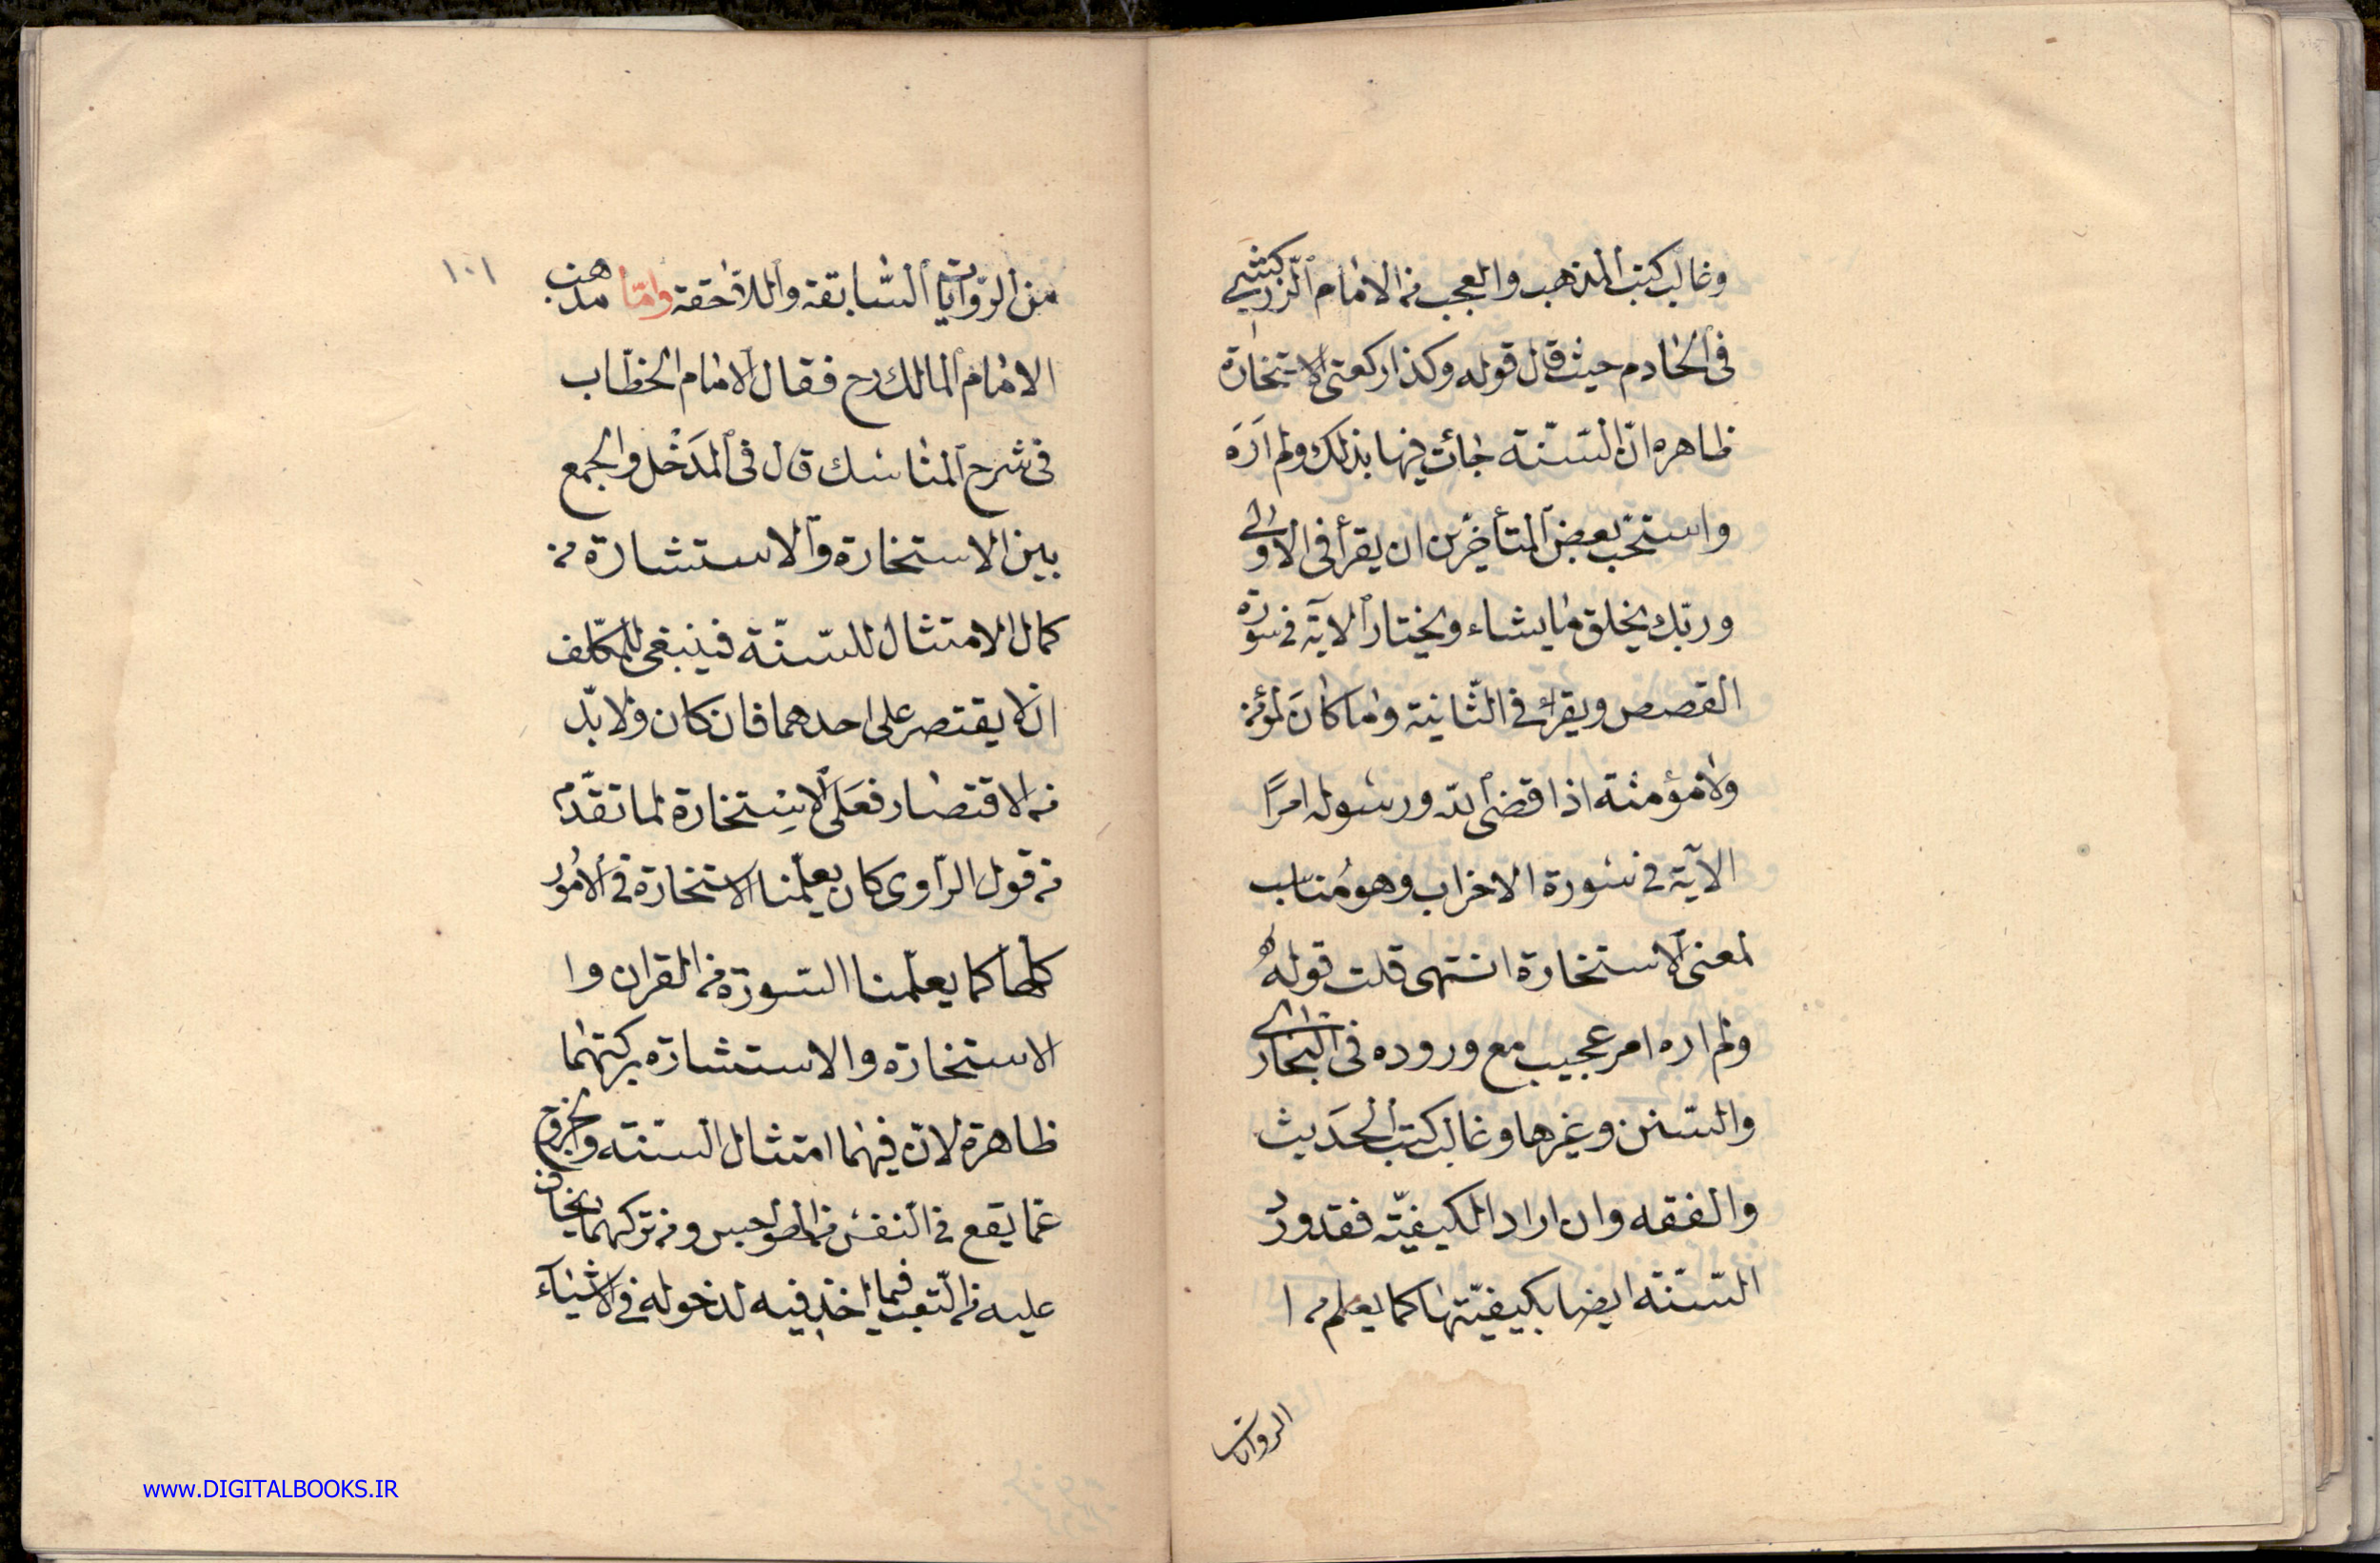 وغالب كتب المذهب والعجب من الامام الزركشي
في الخادم حيث قال قوله وكذا ركعتى الاستخارة
ظاهره ان السنّة جائت فيها بذلك ولم أره
واستحب بعض المتأخرين ان يقرأ في الاولى
وربّك يخلق ما يشاء ويختار الاية في سورة
القصص ويقرأ في الثانية وما كان لمؤمن
ولا مؤمنة اذا قضى الله ورسوله امرًا
الآية في سورة الاحزاب وهو مناسب
لمعنى الاستخارة انتهى قلت قوله
ولم اره امر عجيب مع وروده في البخارى
والسنن وغيرها وغالب كتب الحديث
والفقه وان اراد الكيفيّة فقد ورد
السّنّة ايضا بكيفيّتها كما يعلم من ا
الروايات
١٠١
من الرّوايات السّابقة واللاّحقة وامّا مذهب
الامام المالك رح فقال الامام الخطّاب
في شرح المناسك قال في المَدْخل والجمع
بين الاستخارة والاستشارة من
كمال الامتثال للسّنّة فينبغى للمكلّف
ان لا يقتصر على احدهما فان كان ولا بدّ
من الاقتصار فعلى الاستخارة لما تقدّم
من قول الرّاوى كان يعلّمنا الاستخارة في الامور
كلها كما يعلّمنا السورة من القران وا
الاستخارة والاستشارة بركتهما
ظاهرة لان فيهما امتثال السنة والخروج
عما يقع في النفس من الهواجس ومن تركهما يخاف
عليه من التعب فيما اخذ فيه لدخوله في الاشياء
www.DIGITALBOOKS.IR